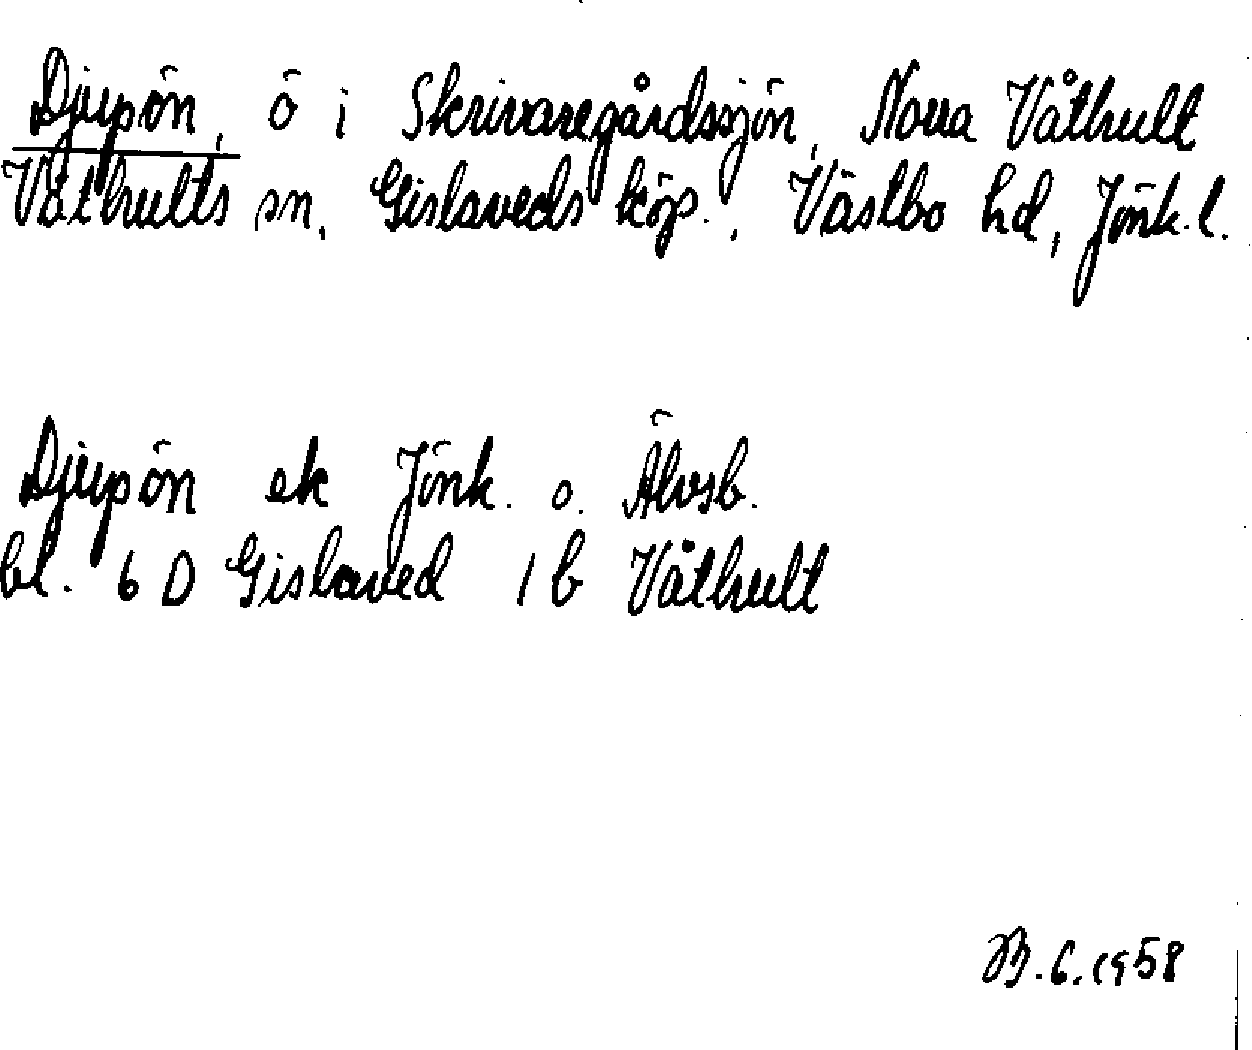 Djupön, ö i Skrivaregårdssjön, Norra Våthult
Våthults sn, Gislaveds köp., Västbo hd, Jönk.l.
Djupön ek Jönk. o. Älvsb.
bl. 6 D Gislaved 1 b Våthult
B.6.1958